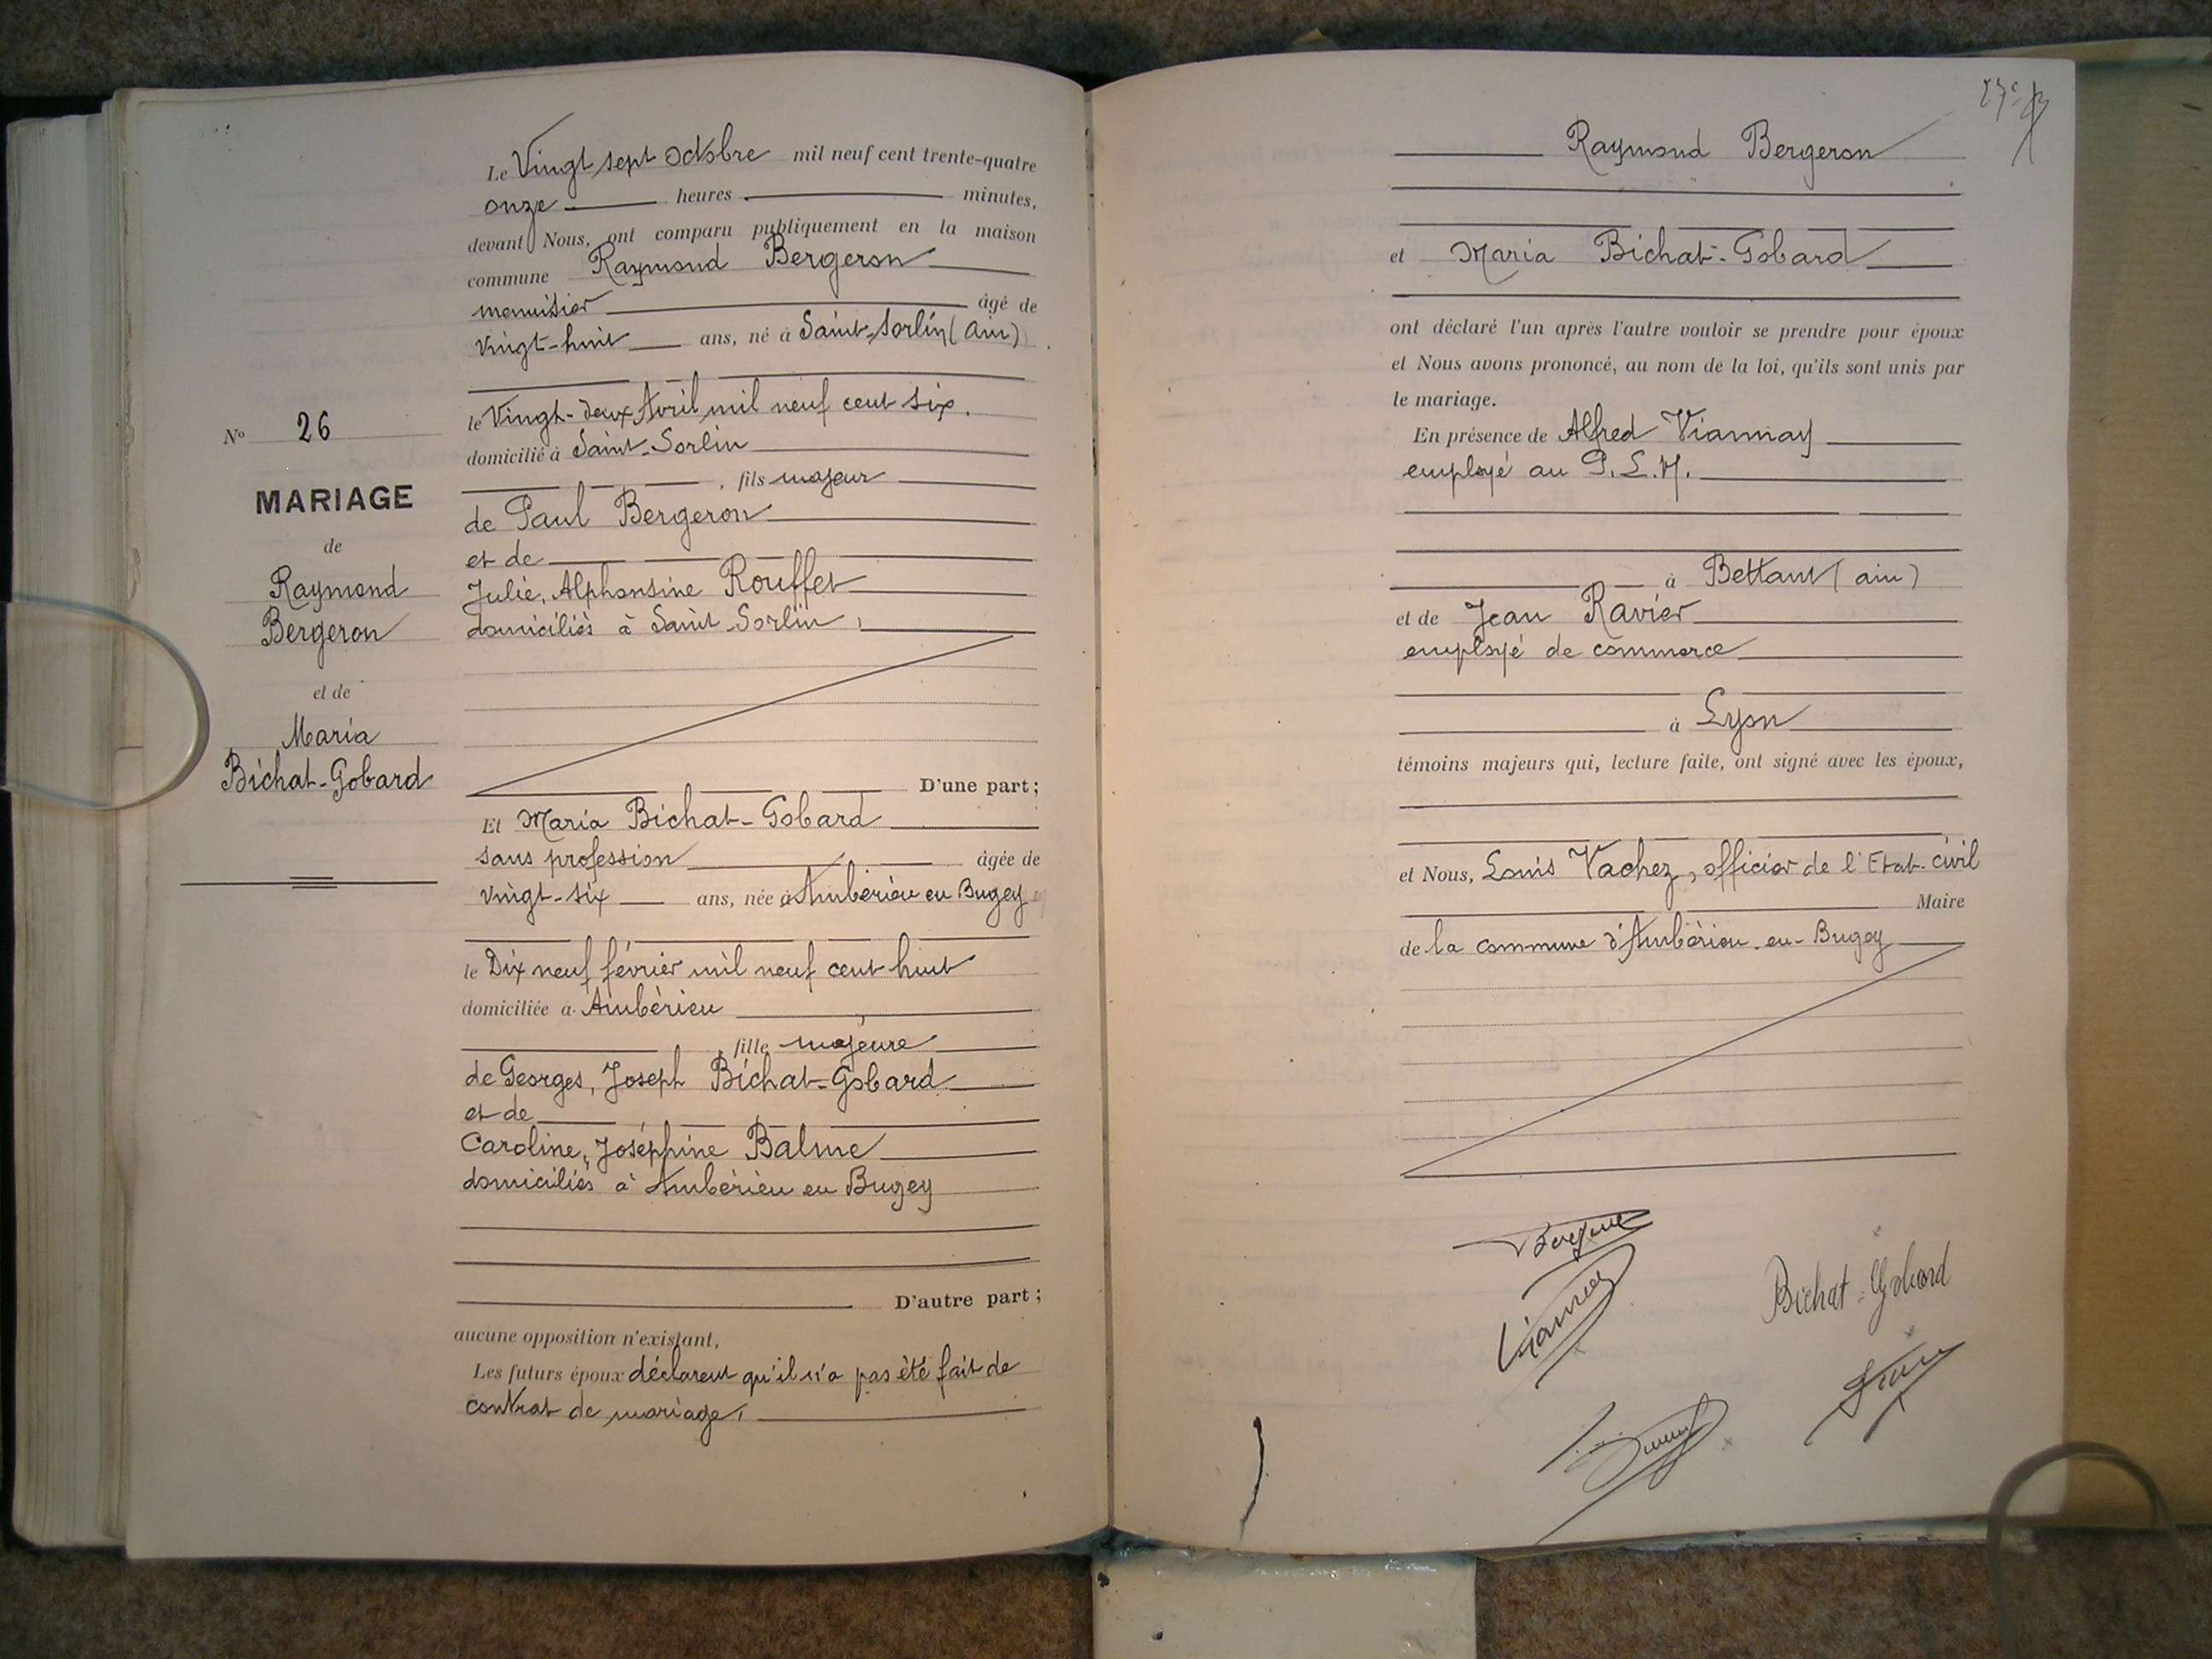 N° 26
MARIAGE
de
Raymond
Bergeron
et de
Maria
Bichat-Gobard
Le Vingt sept Octobre mil neuf cent trente-quatre
onze heures minutes,
devant Nous, ont comparu publiquement en la maison
commune Raymond Bergeron
menuisier âgé de
vingt-huit ans, né à Saint-Sorlin (Ain)
le Vingt-deux Avril mil neuf cent six.
domicilié à Saint-Sorlin
, fils majeur
de Paul Bergeron
et de
Julie, Alphonsine Rouffet
domiciliés à Saint-Sorlin,
D'une part;
Et Maria Bichat-Gobard
sans profession âgée de
vingt-six ans, née à Ambérieu en Bugey
le Dix neuf février mil neuf cent huit
domiciliée à Ambérieu
, fille majeure
de Georges, Joseph Bichat-Gobard
et de
Caroline, Joséphine Balme
domiciliés à Ambérieu en Bugey
D'autre part;
aucune opposition n'existant,
Les futurs époux déclarent qu'il n'a pas été fait de
contrat de mariage,
Raymond Bergeron
et Maria Bichat-Gobard
ont déclaré l'un après l'autre vouloir se prendre pour époux
et Nous avons prononcé, au nom de la loi, qu'ils sont unis par
le mariage.
En présence de Alfred Viannay
employé au P.L.M.
à Bettant (Ain)
et de Jean Ravier
employé de commerce
à Lyon
témoins majeurs qui, lecture faite, ont signé avec les époux,
et Nous, Louis Vachez, officier de l'Etat-civil
Maire
de la commune d'Ambérieu-en-Bugey
Viannay
Bichat-Gobard